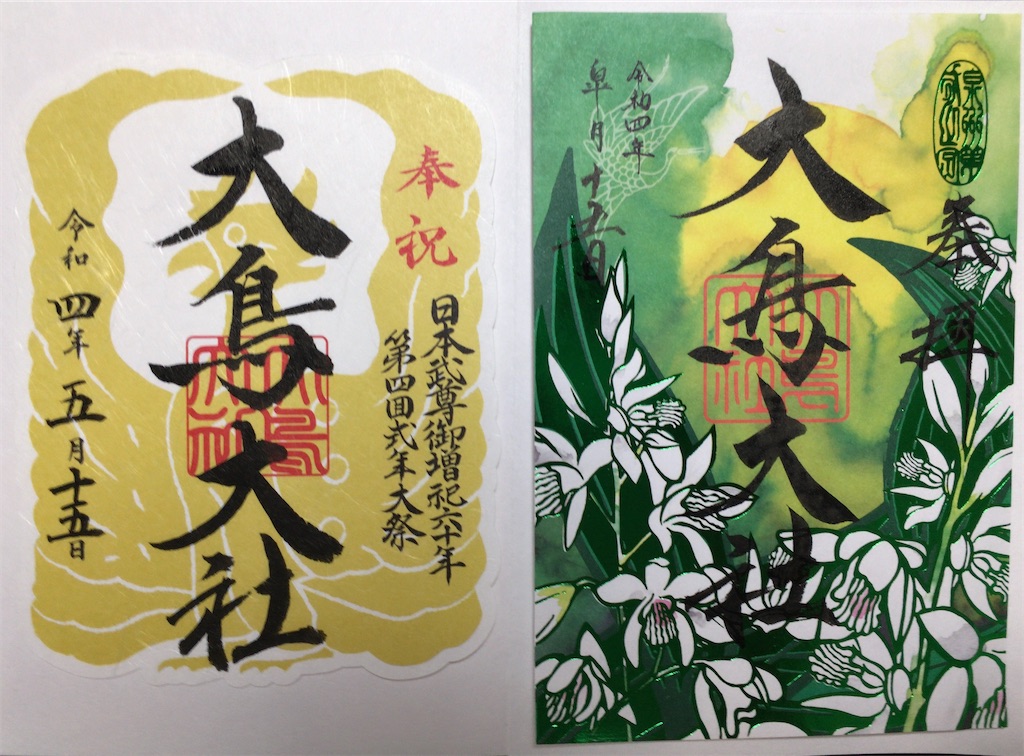 奉祝
日本武尊御増祀六十年
第四回式年大祭
大鳥大社
令和四年五月十五日
奉拝
大鳥大社
大鳥大社
令和四年
皐月十五日
大鳥大社